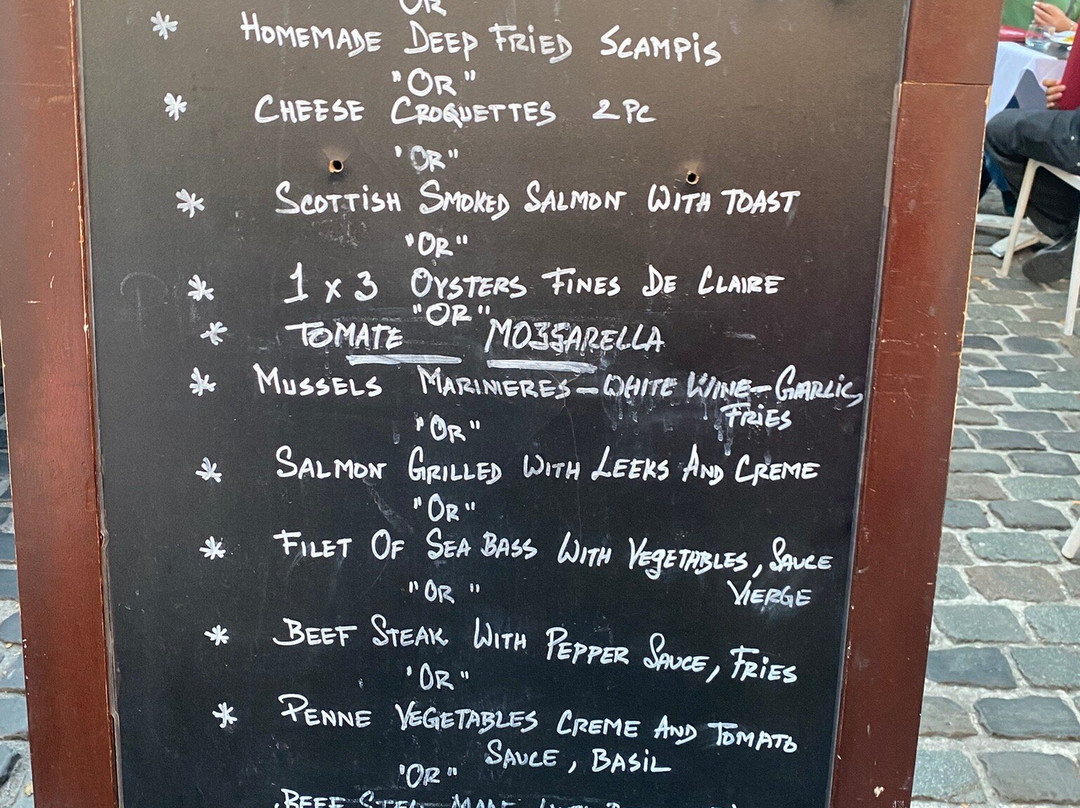 OR
* HOMEMADE DEEP FRIED SCAMPIS
"OR"
* CHEESE CROQUETTES 2 PC
"OR"
* SCOTTISH SMOKED SALMON WITH TOAST
"OR"
* 1 x 3 OYSTERS FINES DE CLAIRE
"OR"
* TOMATE MOZZARELLA
* MUSSELS MARINIERES - WHITE WINE - GARLIC,
FRIES
"OR"
* SALMON GRILLED WITH LEEKS AND CREME
"OR"
* FILET OF SEA BASS WITH VEGETABLES, SAUCE
VIERGE
"OR"
* BEEF STEAK WITH PEPPER SAUCE, FRIES
"OR"
* PENNE VEGETABLES CREME AND TOMATO
SAUCE, BASIL
"OR"
BEEF STEW MADE WITH